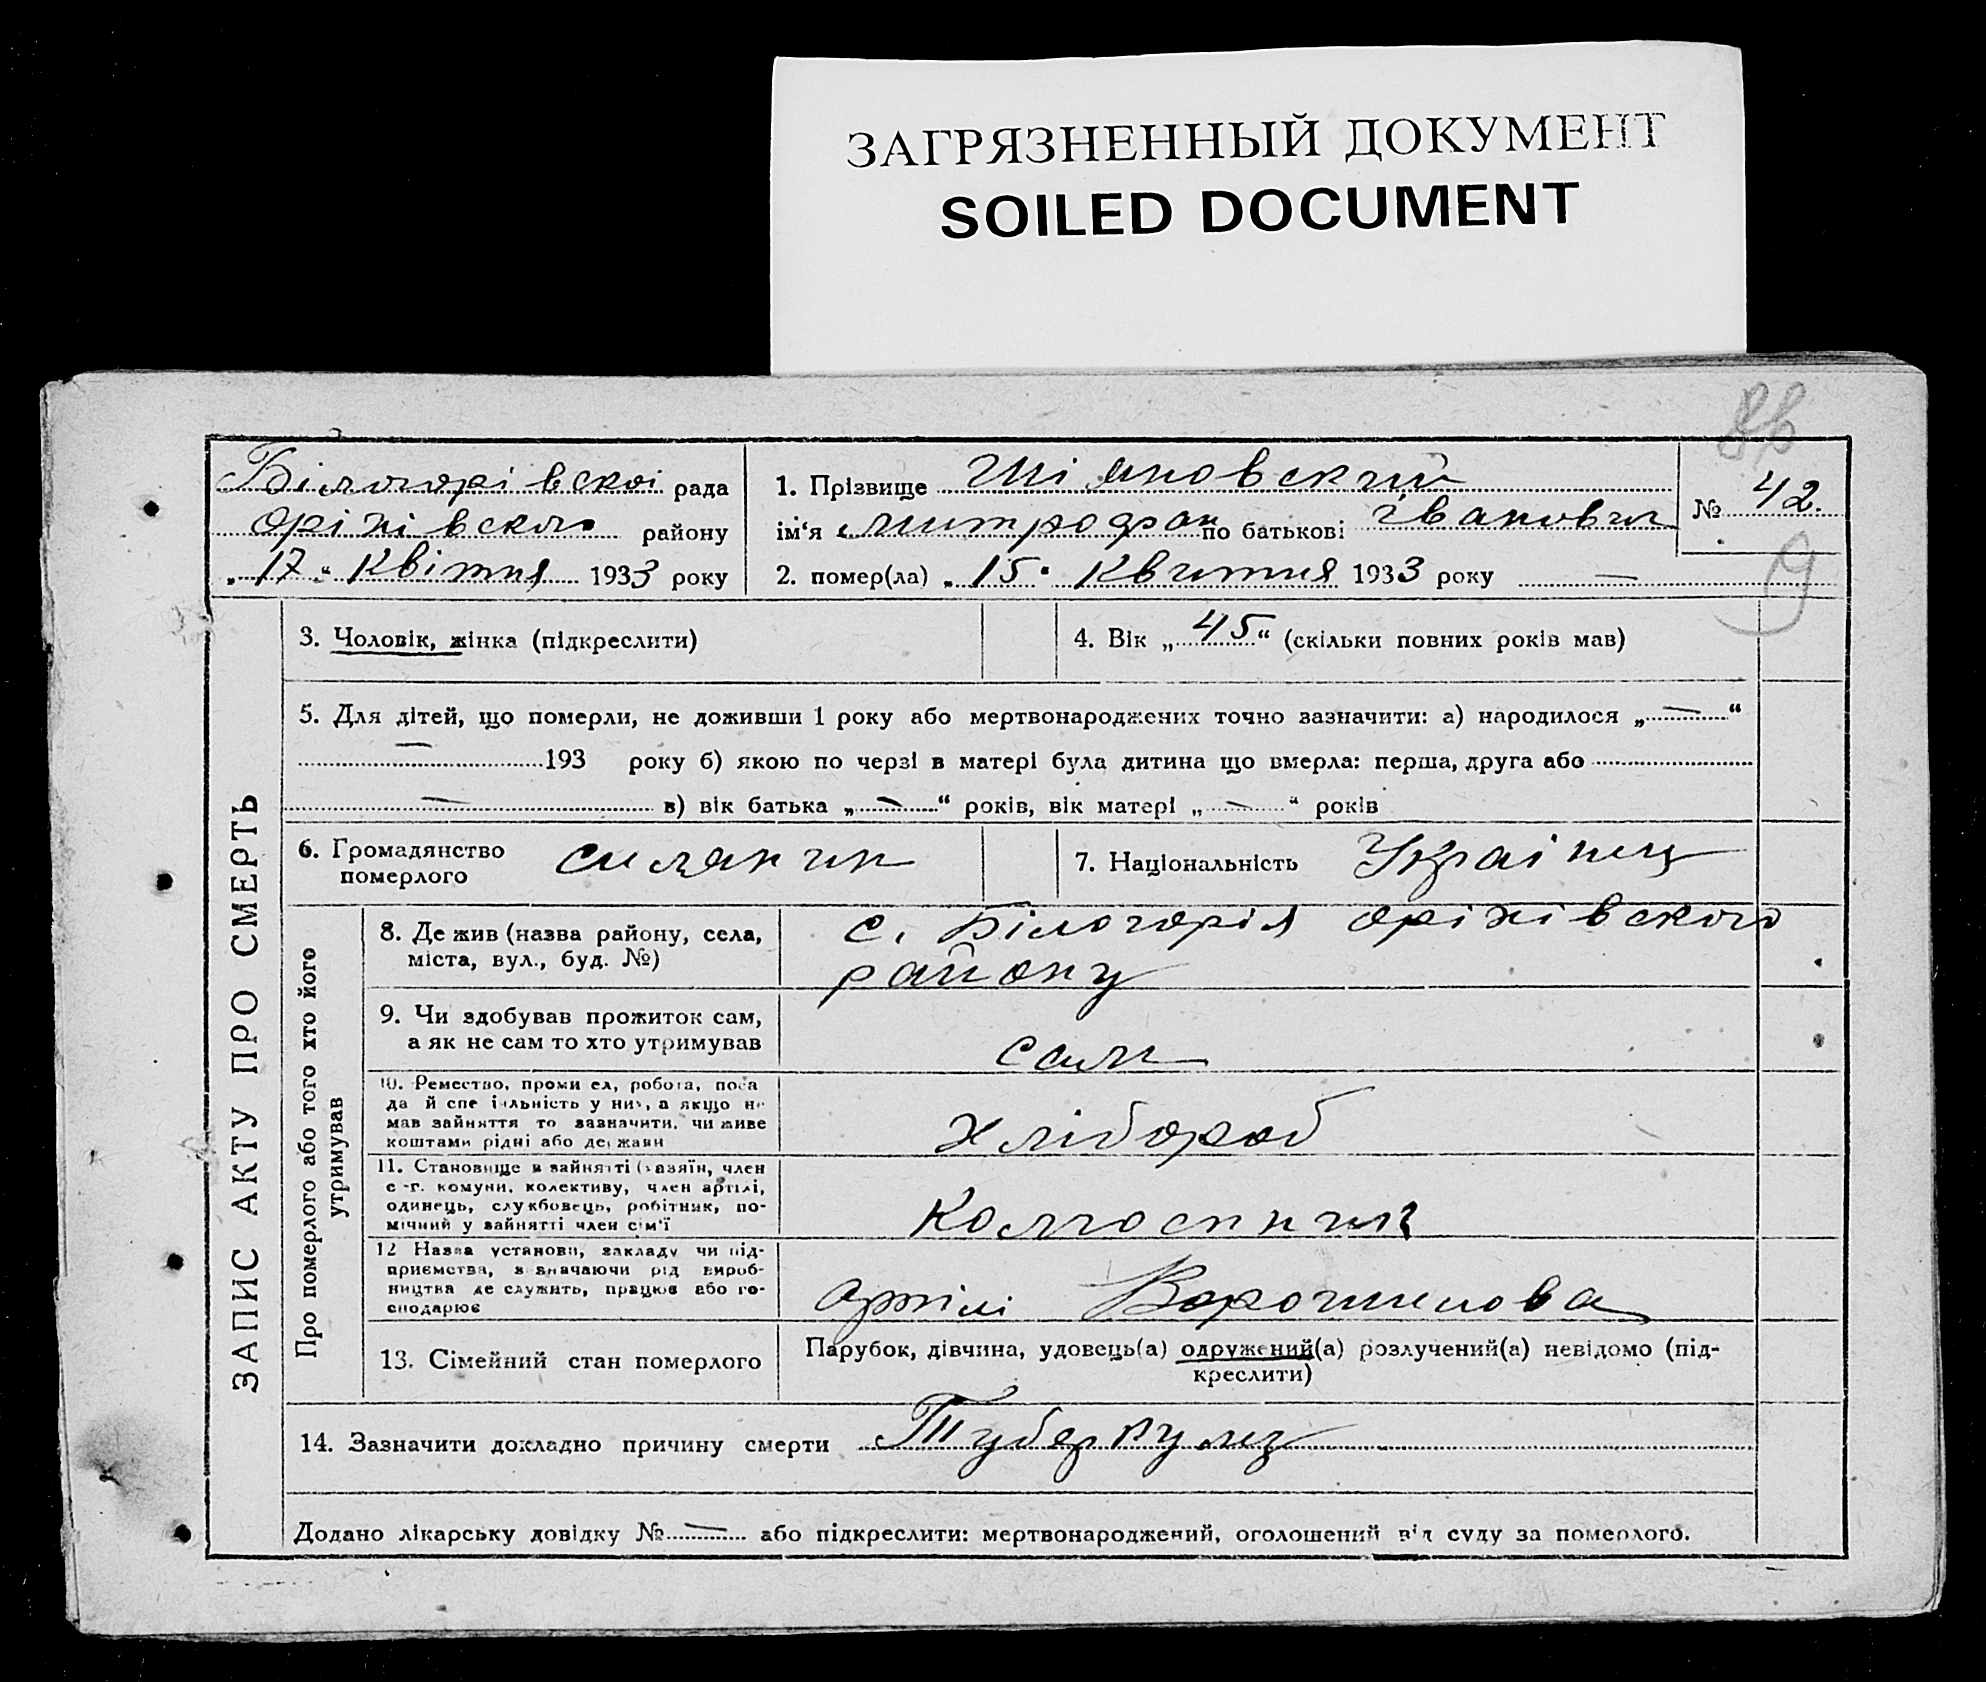 ЗАГРЯЗНЕННЫЙ ДОКУМЕНТ
SOILED DOCUMENT
Білогорівскоі рада
оріхівского району
„17“ Квітня 1933 року
1. Прізвище Шіяновский
ім‘я митрофан по батькові івановач
2. помер(ла) „15" Квитния 1933 року —
№ 42.
9
ЗАПИС АКТУ ПРО СМЕРТЬ
3. Чоловік, жінка (підкреслити)
4. Вік „45“ (скільки повних років мав)
5. Для дітей, що померли, не доживши 1 року або мертвонароджених точно зазначити: а) народилося „—“
— 193 року б) якою по черзі в матері була дитина що вмерла: перша, друга або
— в) вік батька „—“ років, вік матері „—“ років
6. Громадянство
померлого
силянин
7. Національність Украінец
Про померлого або того хто його
утримував
8. Де жив (назва району, села,
міста, вул., буд. №)
с. Білогорія оріхівского
району
9. Чи здобував прожиток сам,
а як не сам то хто утримував
сам
10. Ремество, промисел, робота, поса
да й спеціяльність у них, а якщо не
мав зайняття то зазначити, чи живе
коштами рідні або держави
хлібороб
11. Становище в зайнятті (хазяїн, член
с-г. комуни, колективу, член артілі,
одинець, службовець, робітник, по-
мічний у зайнятті член сім'ї
Колгоспник
12 Назва установи, закладу чи під-
приємства, зазначаючи рід вироб-
ництва де служить, працює або го-
сподарює
артілі Ворошилова
13. Сімейний стан померлого
Парубок, дівчина, удовець(а) одружений(а) розлучений(а) невідомо (під-
креслити)
14. Зазначити докладно причину смерти Туберкульз
Додано лікарську довідку №— або підкреслити: мертвонароджений, оголошений від суду за померлого.